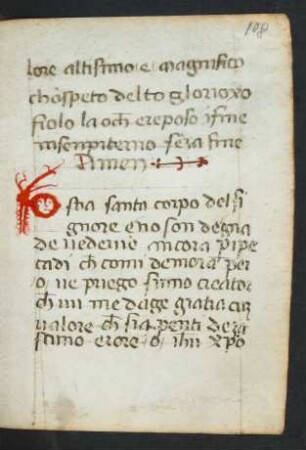 108
lore altissimo e magnifico
chospeto del to glorioxo
fiolo la och ereposo i fine
in senpiterno sēza fine
Amen
O stia santa corpo del si
gnore e no son degnia
de uederue ancora p i pe
cadi ch comi demorat per
o ue priego sumo creator
ch uui me dage gratia cū
ualore ch sia penti de gra
dissimo erore o ihu xpo